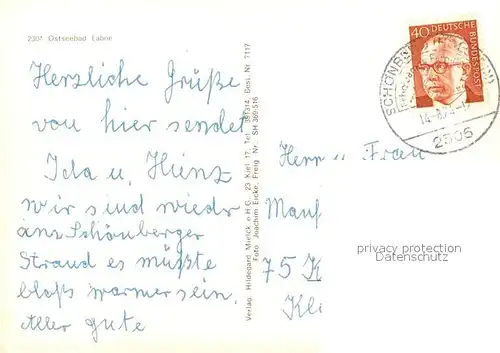 2304 Ostseebad Laboe
Herzliche Grüße
von hier sendet
Ida u. Heinz
wir sind wieder
ans Schönberger
Strand es müßte
bloß warmer sein.
Aller gute
Verlag Hildegard Mürick oHG. 23 Kiel 17, Tel. 391314, Best. Nr. 7117
Foto Joachim Eicke, Freig. Nr. SH 369-516
40 DEUTSCHE BUNDESPOST
SCHÖNBERG
2305
Herr u. Frau
Manf
75 K
Kl
privacy protection
Datenschutz